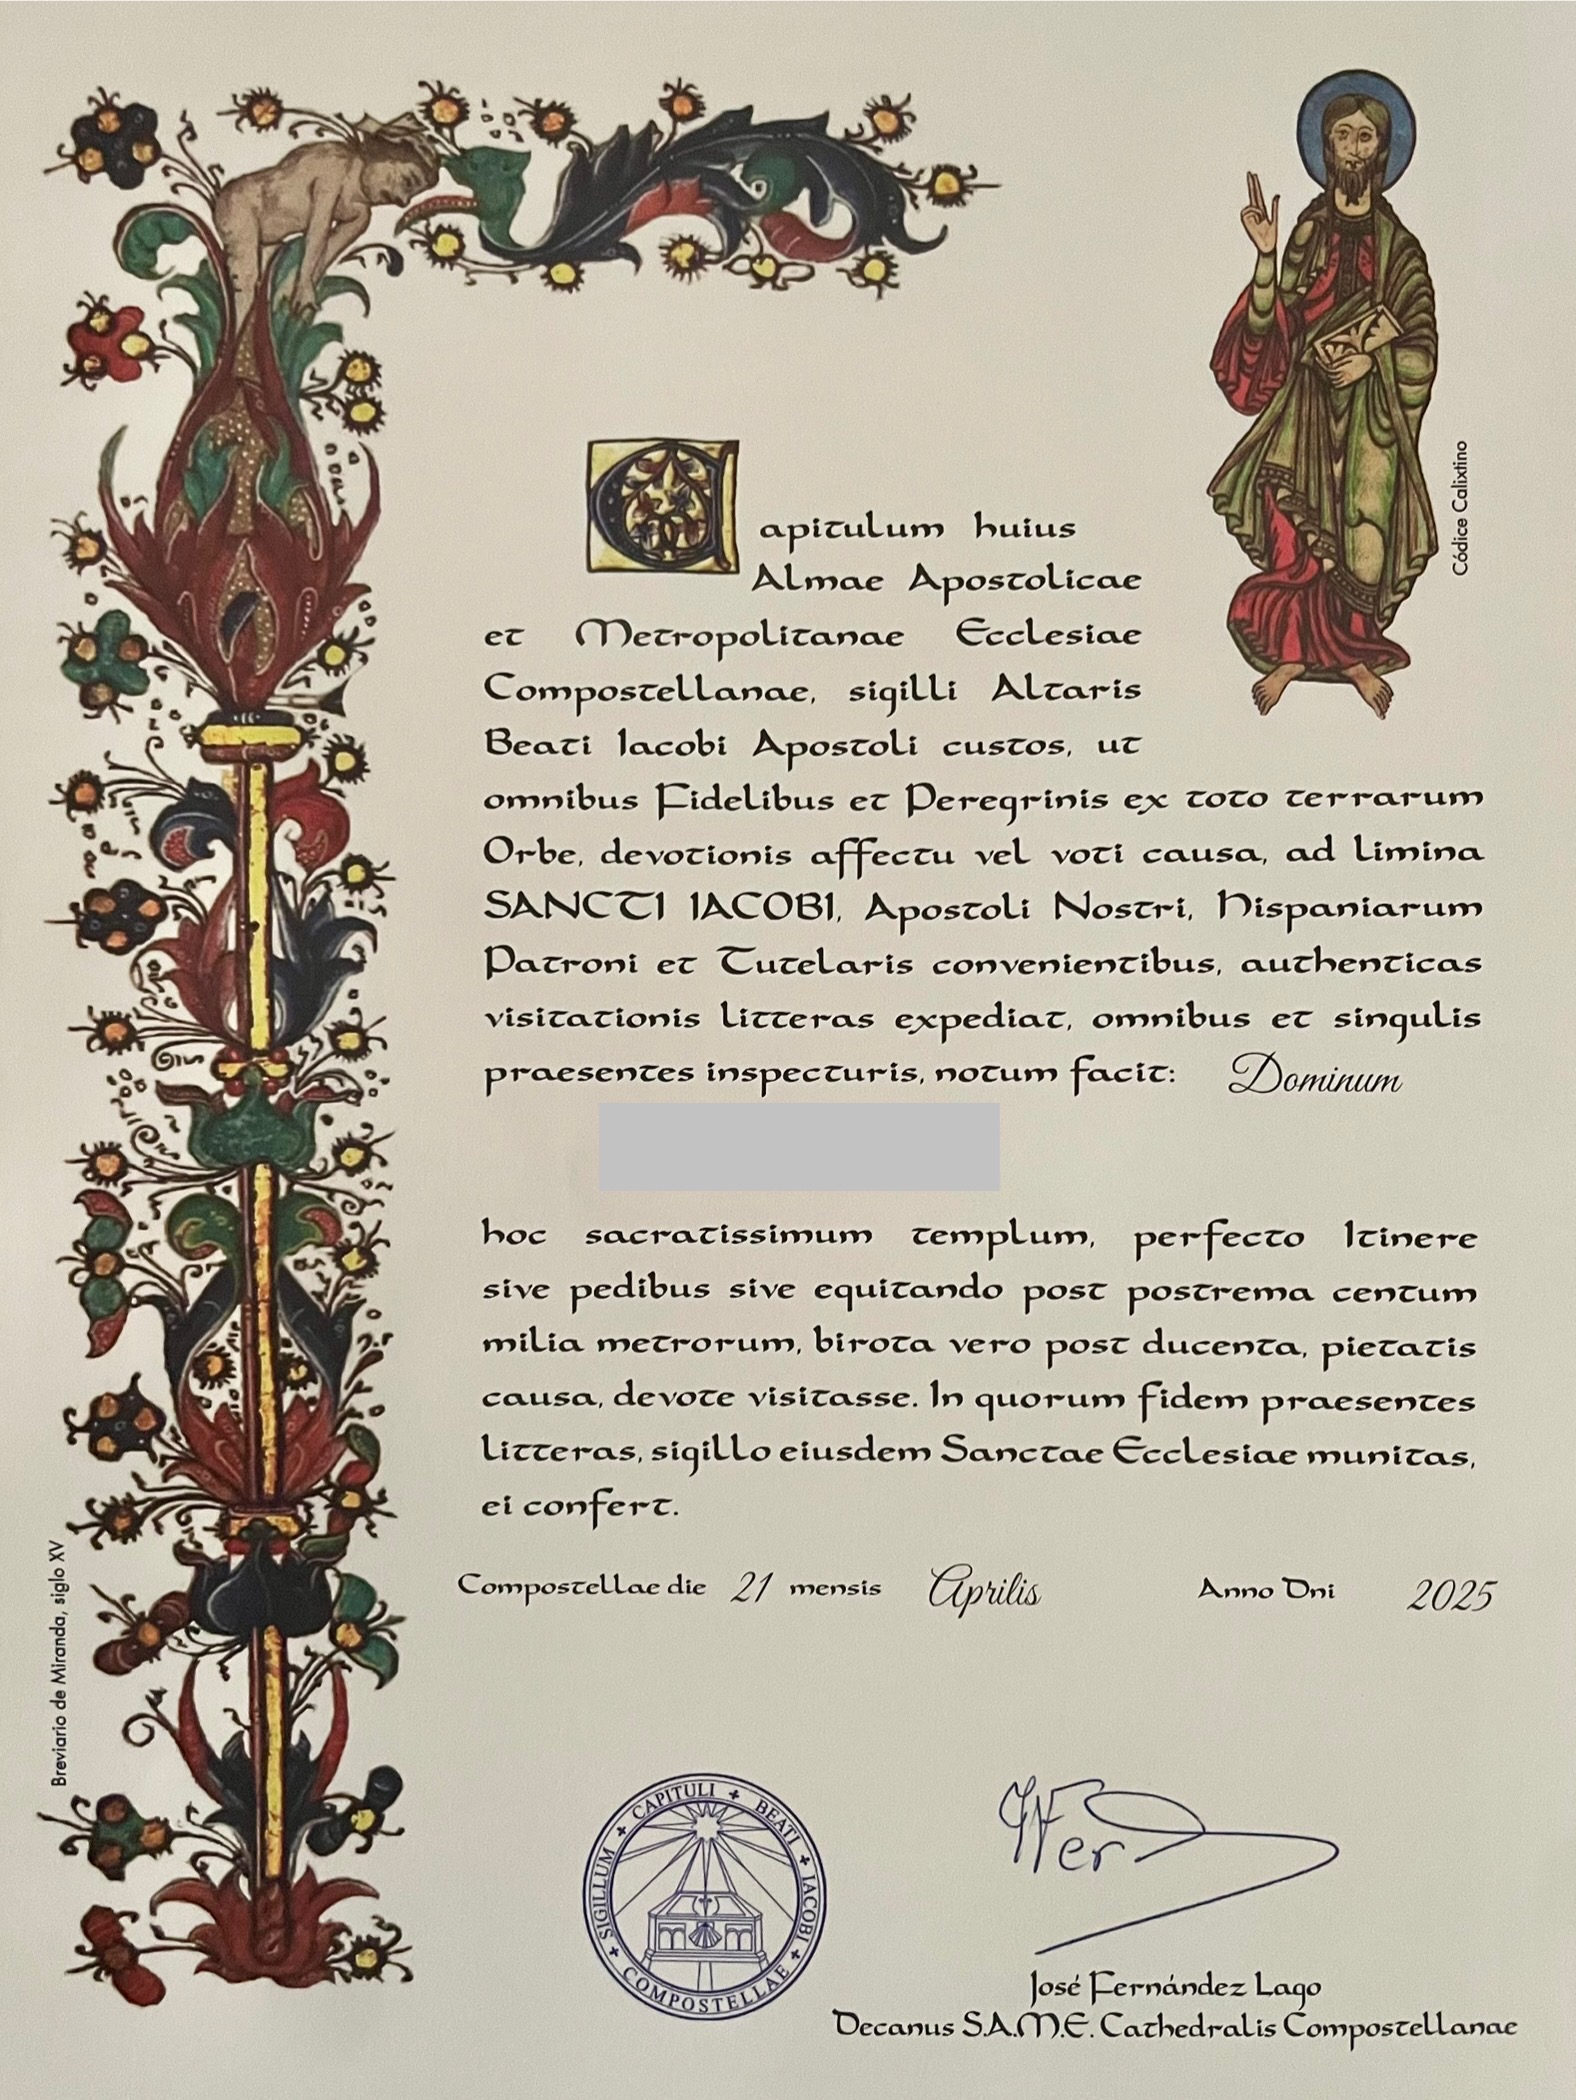 Capitulum huius
Almae Apostolicae
et Metropolitanae Ecclesiae
Compostellanae, sigilli Altaris
Beati Iacobi Apostoli custos, ut
omnibus Fidelibus et Peregrinis ex toto terrarum
Orbe, devotionis affectu vel voti causa, ad limina
SANCTI IACOBI, Apostoli Nostri, Hispaniarum
Patroni et Tutelaris convenientibus, authenticas
visitationis litteras expediat, omnibus et singulis
praesentes inspecturis, notum facit: Dominum
hoc sacratissimum templum, perfecto Itinere
sive pedibus sive equitando post postrema centum
milia metrorum, birota vero post ducenta, pietatis
causa, devote visitasse. In quorum fidem praesentes
litteras, sigillo eiusdem Sanctae Ecclesiae munitas,
ei confert.
Compostellae die 21 mensis Aprilis Anno Dni 2025
Códice Calixtino
Breviario de Miranda, siglo XV
SIGILLUM + CAPITULI + BEATI + IACOBI + COMPOSTELLAE +
José Fernández Lago
Decanus S.A.M.E. Cathedralis Compostellanae